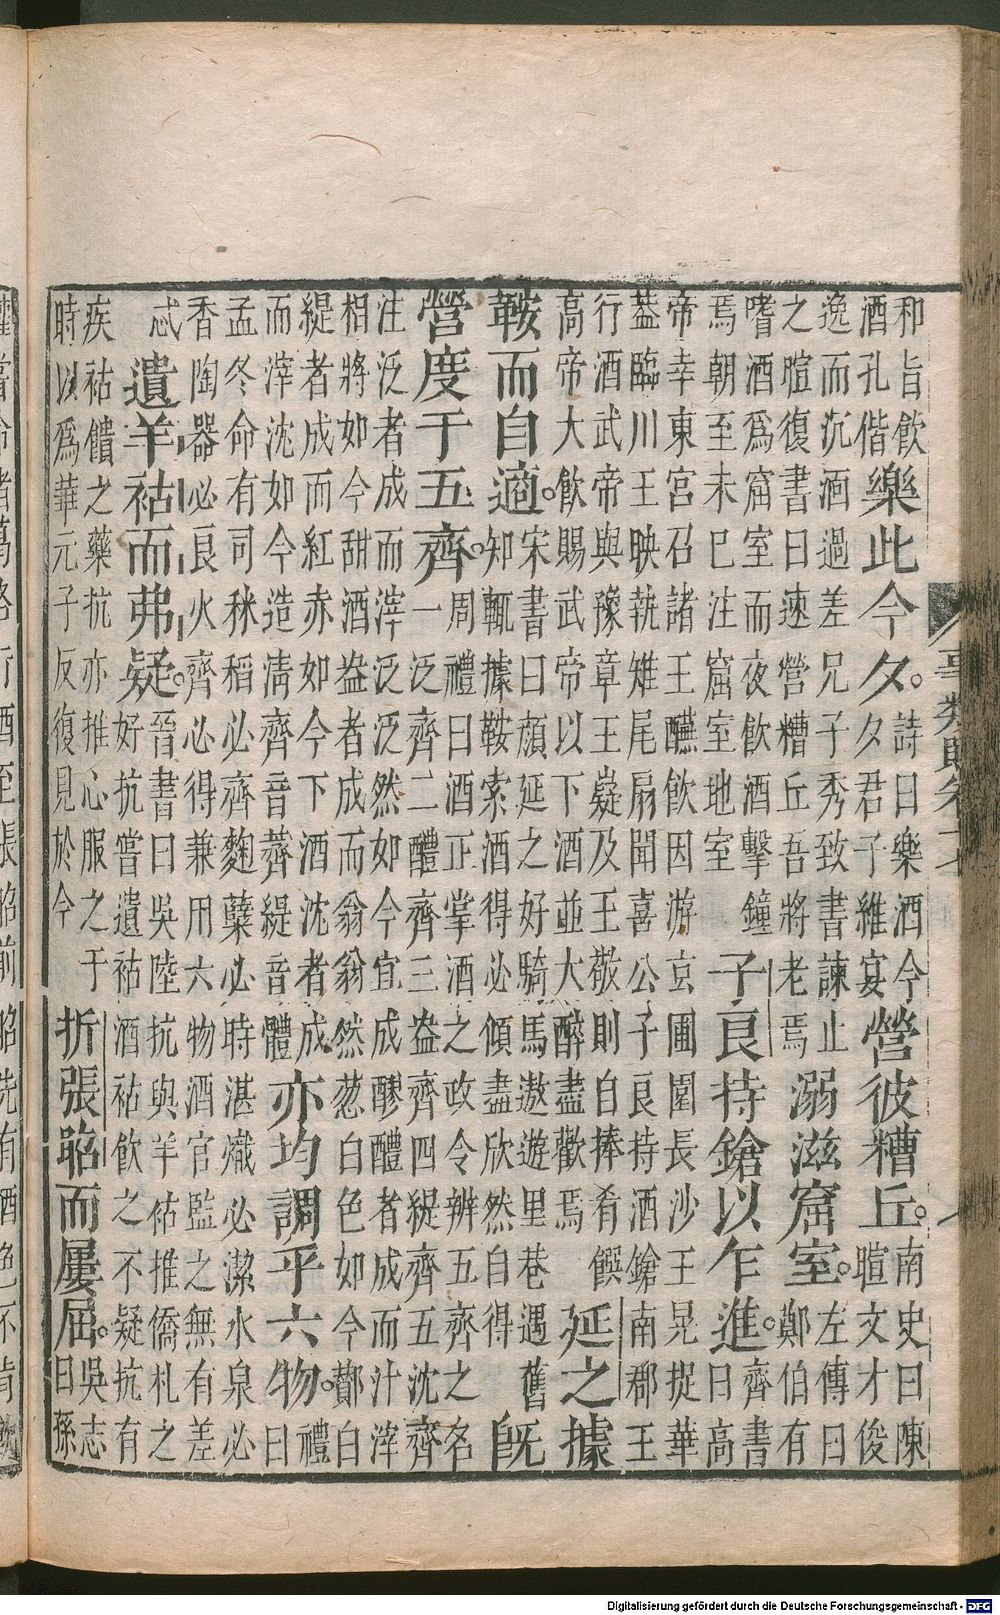 和旨飲
酒孔偕
樂此今夕。
詩曰樂酒今
夕君子維宴
營彼糟丘。
南史曰陳
暄文才俊
逸而沉湎過差兄子秀致書諫止
之暄復書曰速營糟丘吾將老焉
溺滋窟室。
左傳曰
鄭伯有
嗜酒爲窟室而夜飲酒擊鐘
焉朝至未已注窟室地室
子良持鎗以乍進。
齊書
曰高
帝幸東宮召諸王讌飲因游玄圃圍長沙王晃捉華
葢臨川王映執雉尾扇聞喜公子良持酒鎗南郡王
行酒武帝與豫章王嶷及王敬則自捧肴饌
高帝大飲賜武帝以下酒並大醉盡歡焉
延之據
鞍而自適。
宋書曰顔延之好騎馬遨遊里巷遇舊
知輒據鞍索酒得必傾盡欣然自得
既
營度于五齊。
周禮曰酒正掌酒之政令辨五齊之名
一泛齊二醴齊三盎齊四緹齊五沈齊
注泛者成而滓泛泛然如今宜成醪醴者成而汁滓
相將如今甜酒盎者成而翁翁然葱白色如今酇白
緹者成而紅赤如今下酒沈者成
而滓沈如今造淸齊音薺緹音體
亦均調乎六物。
禮
曰
孟冬命有司秫稻必齊麴糵必時湛熾必潔水泉必
香陶器必良火齊必得兼用六物酒官監之無有差
忒
遺羊祜而弗疑。
晉書曰吳陸抗與羊祜推僑札之
好抗嘗遺祜酒祜飲之不疑抗有
疾祜饋之藥抗亦推心服之于
時以爲華元子反復見於今
折張昭而屢屈。
吳志
曰孫
事類賦卷十七
Digitalisierung gefördert durch die Deutsche Forschungsgemeinschaft - DFG